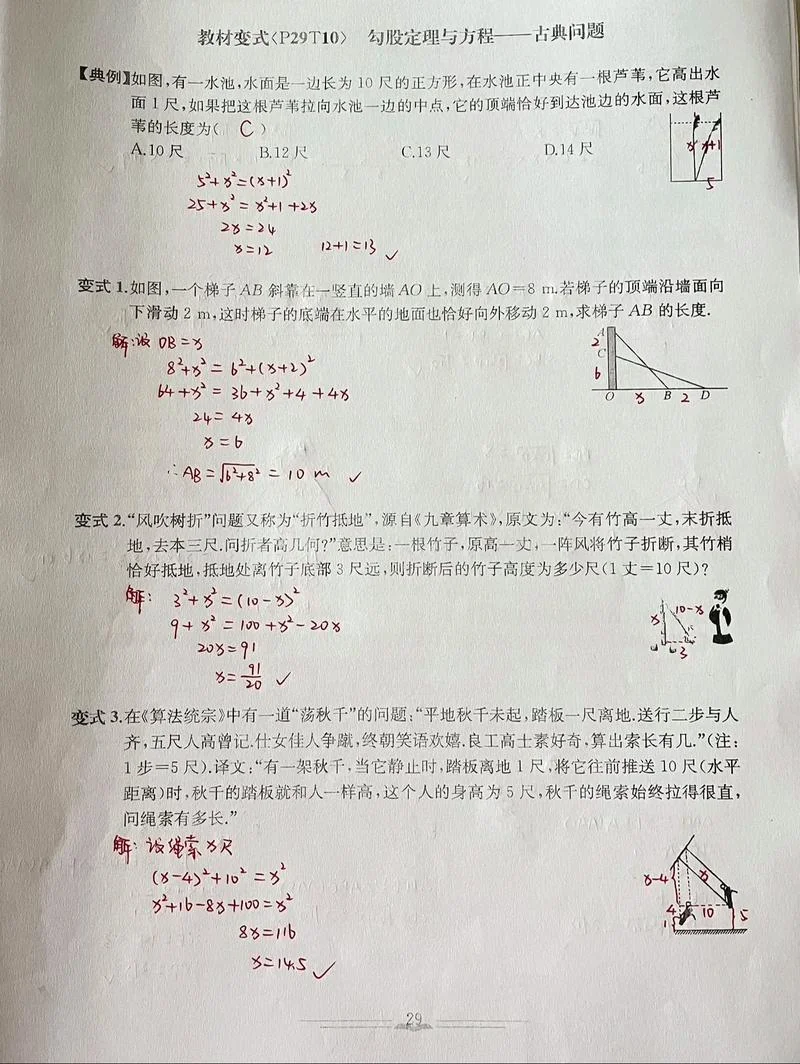 教材变式〈P29T10〉 勾股定理与方程——古典问题
【典例】如图,有一水池,水面是一边长为 10 尺的正方形,在水池正中央有一根芦苇,它高出水
面 1 尺,如果把这根芦苇拉向水池一边的中点,它的顶端恰好到达池边的水面,这根芦
苇的长度为( C )
A.10 尺 B.12 尺 C.13 尺 D.14 尺
x x+1
5
5²+x²=(x+1)²
25+x²=x²+1+2x
2x=24
x=12 12+1=13 ✓
变式 1.如图,一个梯子 AB 斜靠在一竖直的墙 AO 上,测得 AO=8 m.若梯子的顶端沿墙面向
下滑动 2 m,这时梯子的底端在水平的地面也恰好向外移动 2 m,求梯子 AB 的长度.
解:设 OB=x
8²+x²=6²+(x+2)²
64+x²=36+x²+4+4x
24=4x
x=6
∴AB=√6²+8²=10 m ✓
A
2
C
6
O x B 2 D
变式 2.“风吹树折”问题又称为“折竹抵地”,源自《九章算术》,原文为:“今有竹高一丈,末折抵
地,去本三尺.问折者高几何?”意思是:一根竹子,原高一丈,一阵风将竹子折断,其竹梢
恰好抵地,抵地处离竹子底部 3 尺远,则折断后的竹子高度为多少尺(1 丈=10 尺)?
解: 3²+x²=(10-x)²
9+x²=100+x²-20x
20x=91
x=91/20 ✓
x 10-x
3
变式 3.在《算法统宗》中有一道“荡秋千”的问题:“平地秋千未起,踏板一尺离地.送行二步与人
齐,五尺人高曾记.仕女佳人争蹴,终朝笑语欢嬉.良工高士素好奇,算出索长有几.”(注:
1 步=5 尺).译文:“有一架秋千,当它静止时,踏板离地 1 尺,将它往前推送 10 尺(水平
距离)时,秋千的踏板就和人一样高,这个人的身高为 5 尺,秋千的绳索始终拉得很直,
问绳索有多长.”
解:设绳索 x 尺
(x-4)²+10²=x²
x²+16-8x+100=x²
8x=116
x=14.5 ✓
x-4 x
4 10 5
1
29